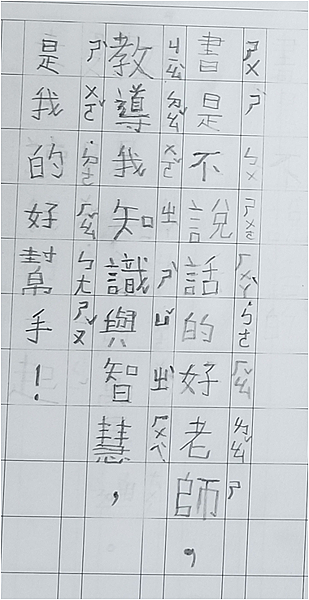 書是不說話的好老師，
教導我知識與智慧，
是我的好幫手！